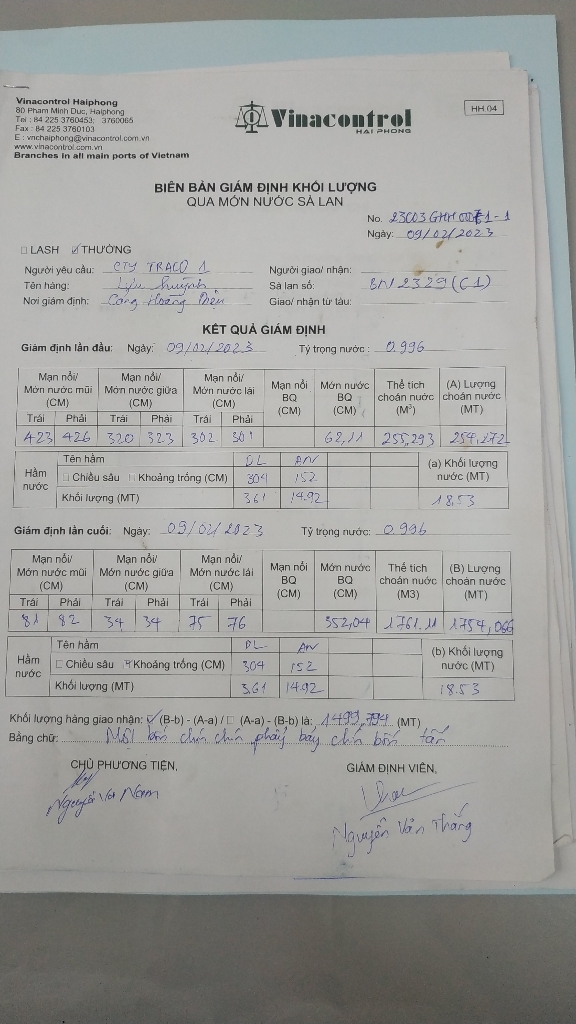 Vinacontrol Haiphong
80 Pham Minh Duc, Haiphong
Tel : 84 225 3760453; 3760065
Fax : 84 225 3760103
E : vnchaiphong@vinacontrol.com.vn
www.vinacontrol.com.vn
Branches in all main ports of Vietnam
Vinacontrol
HAI PHONG
HH.04
BIÊN BẢN GIÁM ĐỊNH KHỐI LƯỢNG
QUA MỚN NƯỚC SÀ LAN
No. 23C03GHH
Ngày: 09/02/2023
LASH THƯỜNG
Người yêu cầu: CTY TRACO 1 Người giao/ nhận:
Tên hàng: Lưu huỳnh Sà lan số: BN 2329 (C1)
Nơi giám định: Cảng Hoàng Diệu Giao/ nhận từ tàu:
KẾT QUẢ GIÁM ĐỊNH
Giám định lần đầu: Ngày: 09/02/2023 Tỷ trọng nước : 0.996
Mạn nổi/ Mớn nước mũi (CM) Mạn nổi/ Mớn nước giữa (CM) Mạn nổi/ Mớn nước lái (CM) Mạn nổi BQ (CM) Mớn nước BQ (CM) Thể tích choán nước (M³) (A) Lượng choán nước (MT)
Trái Phải Trái Phải Trái Phải
423 426 320 323 302 301 62,11 255,293 254,272
Hầm nước Tên hầm DL AN (a) Khối lượng nước (MT)
Chiều sâu Khoảng trống (CM) 304 152
Khối lượng (MT) 3.61 14.92 18.53
Giám định lần cuối: Ngày: 09/02/2023 Tỷ trọng nước: 0.996
Mạn nổi/ Mớn nước mũi (CM) Mạn nổi/ Mớn nước giữa (CM) Mạn nổi/ Mớn nước lái (CM) Mạn nổi BQ (CM) Mớn nước BQ (CM) Thể tích choán nước (M3) (B) Lượng choán nước (MT)
Trái Phải Trái Phải Trái Phải
81 82 34 34 75 76 352,04 1761.11 1754,066
Hầm nước Tên hầm DL AN (b) Khối lượng nước (MT)
Chiều sâu Khoảng trống (CM) 304 152
Khối lượng (MT) 3.61 14.92 18.53
Khối lượng hàng giao nhận: (B-b) - (A-a) / (A-a) - (B-b) là: 1499,794 (MT)
Bằng chữ: Một bốn chín chín phẩy bảy chín bốn tấn
CHỦ PHƯƠNG TIỆN, GIÁM ĐỊNH VIÊN,
Nguyễn Văn Nam
Nguyễn Văn Thắng